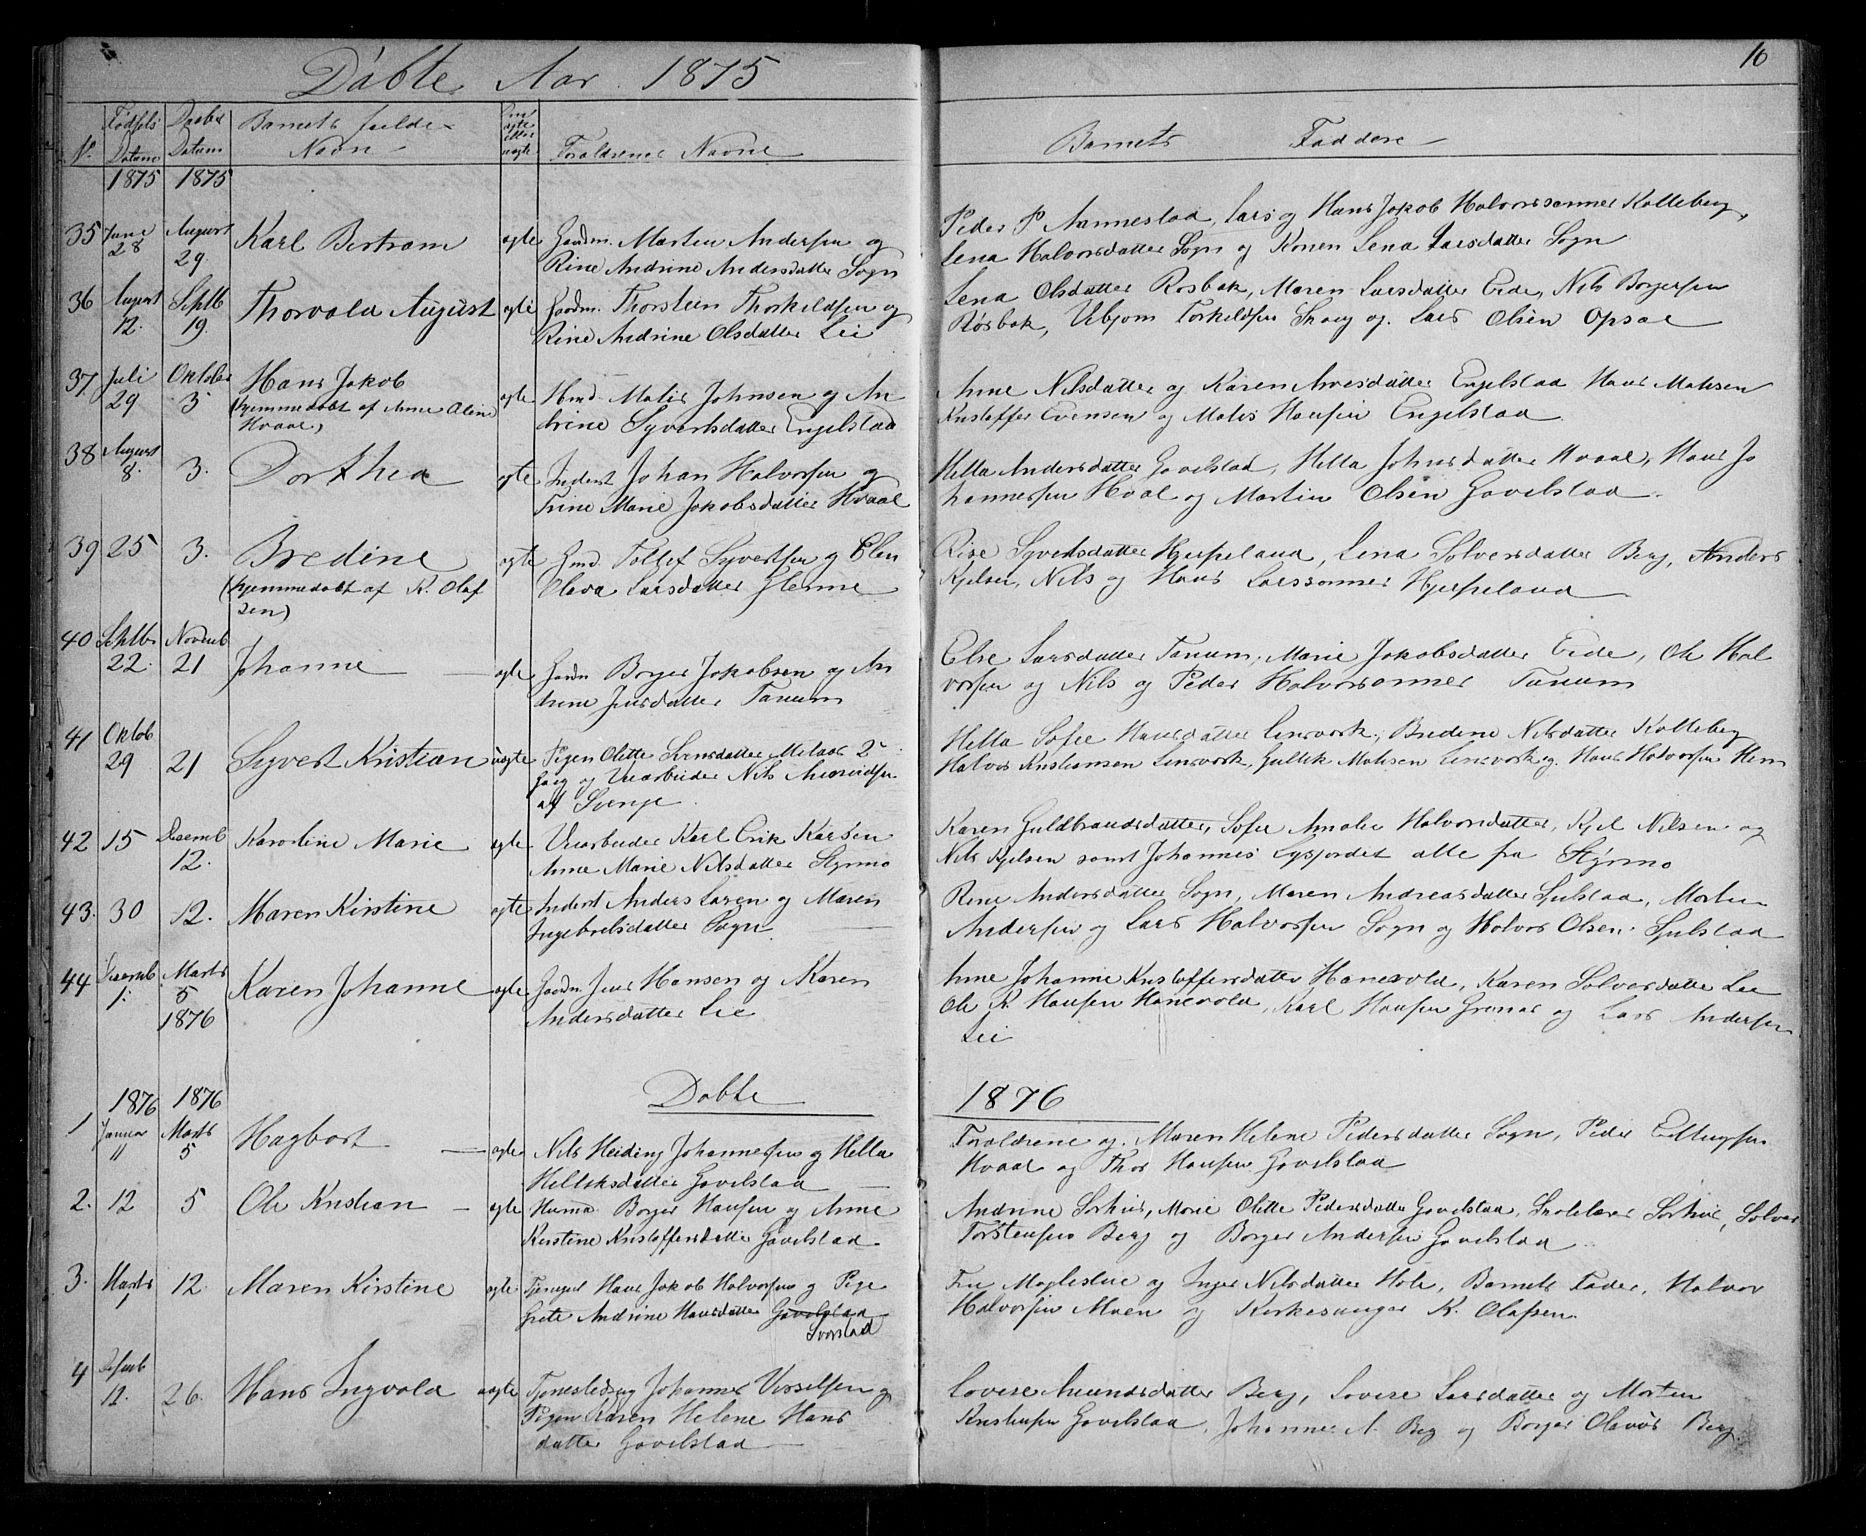 Döbte Aar 1875
16
No
Fødsels
Datum
Daabs
Datum
Barnets fulde
Navn
Om
ægte
eller
uægte
Forældrenes Navne
Barnets Faddere
1875 1875
35 Juni
28
August
29
Karl Bertram
ægte
Gaardm. Morten Andersen og
Rine Andrine Andersdatter Sogn
Peder P Aannestad, Lars og Hans Jakob Halvorssønner Kolleberg,
Lena Halvorsdatter Sogn og Konen Lena Larsdatter Sogn
36 August
12.
Septb
19.
Thorvald August
ægte
Gaardm. Thorsten Thorkildsen og
Rine Andrine Olsdatter Lie
Lena Olsdatter Rosbak, Maren Larsdatter Eide, Nils Borgersen
Røsbak, Asbjørn Torkeldsen Skaug og Lars Olsen Opsal
37 Juli
29
Oktober
3
Hans Jakob
(hjemmedøbt af Anne Oline
Hvaal)
ægte
Hmd. Matis Johnsen og An
drine Syvertsdatter Engelstad
Anne Nilsdatter og Karen Arnesdatter Engelstad Hans Matisen
Kristoffer Evensen og Matis Hansen Engelstad
38 August
8.
3.
Dorthea
ægte
Inderst Johan Halvorsen og
Trine Marie Jakobsdatter Hvaal
Hella Andersdatter Gavelstad, Hella Johnsdatter Hvaal, Hans Jo
hannessen Hvaal og Martin Olsen Gavelstad
39 25 3.
Bredine
(hjemmedøbt af K. Olaf
sen)
ægte
Hmd. Tollef Syvertsen og Elen
Olava Larsdatter Hemne
Rise Syvertsdatter Hjerpeland, Lena Solversdatter Berg, Anders
Kjelsen, Nils og Hans Larssønner Hjerpeland
40 Septbr
22.
Novemb
21
Johanne
ægte
Gaardm Borger Jakobsen og An
drine Jensdatter Tanum
Else Larsdatter Tanum, Marie Jakobsdatter Eide, Ole Hal
vorsen og Nils og Peder Halvorssønner Tanum
41 Oktob
29
21
Syvert Kristian
uægte
Pigen Olette Svensdatter Melaas 2den
Gang og Veiarbeider Nils Anundsen
af Sverige
Hella Sofie Hansdatter Linsverk, Bredine Nilsdatter Kolleberg
Halvor Kristiansen Linsverk, Gullik Matisen Linsverk og Hans Halvorsen Hem
42 15
Desemb
12.
Karoline Marie
ægte
Veiarbeider Karl Erik Karsen
Anne Marie Nilsdatter Styrmo
Karen Guldbrandsdatter, Sofie Amalie Halvorsdatter, Kjel Nilsen og
Nils Kjelsen samt Johannes Lysfjordet alle fra Styrmo
43. 30 12.
Maren Kirstine
ægte
Inderst Anders Larsen og Maren
Ingebretsdatter Sogn
Rine Andersdatter Sogn, Maren Andreasdatter Sjulstad, Morten
Andersen og Lars Halvorsen Sogn og Halvor Olsen Sjulstad
44 Desemb
1.
Marts
5
1876
Karen Johanne
ægte
Gaardm Jens Hansen og Karen
Andersdatter Lie
Anne Johanne Kristoffersdatter Hanevold, Karen Solversdatter Lie
Ole K Hansen Hanevold, Karl Hansen Grønaas og Lars Andersen
Lie
1876 1876
Døbte 1876
1 Januar
11
Marts
5
Hagbart
ægte
Nils Heiding Johannessen og Hella
Helleksdatter Gavelstad
Forældrene og Maren Helene Pedersdatter Sogn, Peder Ellingsen
Hvaal og Thor Hansen Gavelstad
2. 12 5
Ole Kristian
ægte
Husmd. Borger Hansen og Anne
Kirstine Kristoffersdatter Gavelstad
Andrine Sørhus, Marie Olette Pedersdatter Gavelstad, Skolelærer Sørhus, Solver
Torstensen Berg og Borger Andersen Gavelstad
3. Marts
1
12.
Maren Kirstine
ægte
Tjenegut Hans Jakob Halvorsen og Pige
Grete Andrine Hansdatter Gavelstad
Svorstad
Fru Moglestue og Inger Nilsdatter Hole, Barnets Fader, Halvor
Halvorsen Moen og Kirkesanger K. Olafsen.
4 Desemb
12.
26.
Hans Ingvald
uægte
Tjenestedreng Johannes Visselsen og
Pigen Karen Helene Hans
datter Gavelstad
Lovise Amundsdatter Berg, Lovise Larsdatter og Morten
Kristensen Gavelstad, Johannes A. Berg og Borger Olavus Berg.